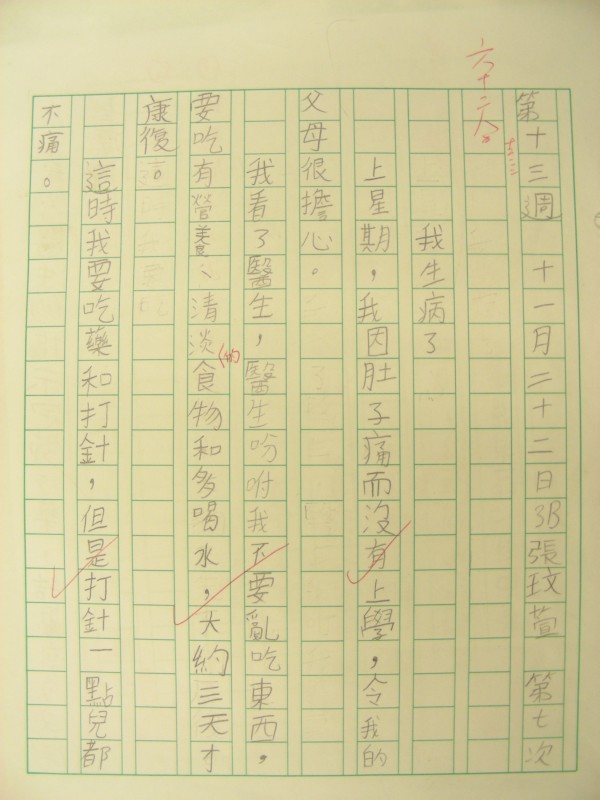 第十三週 十一月二十二日 3B 張玟萱 第七次
六十二令。
我生病了
上星期，我因肚子痛而沒有上學，令我的
父母很擔心。
我看了醫生，醫生吩咐我不要亂吃東西，
要吃有營養、清淡(的)食物和多喝水，大約三天才
康復。
這時我要吃藥和打針，但是打針一點兒都
不痛。